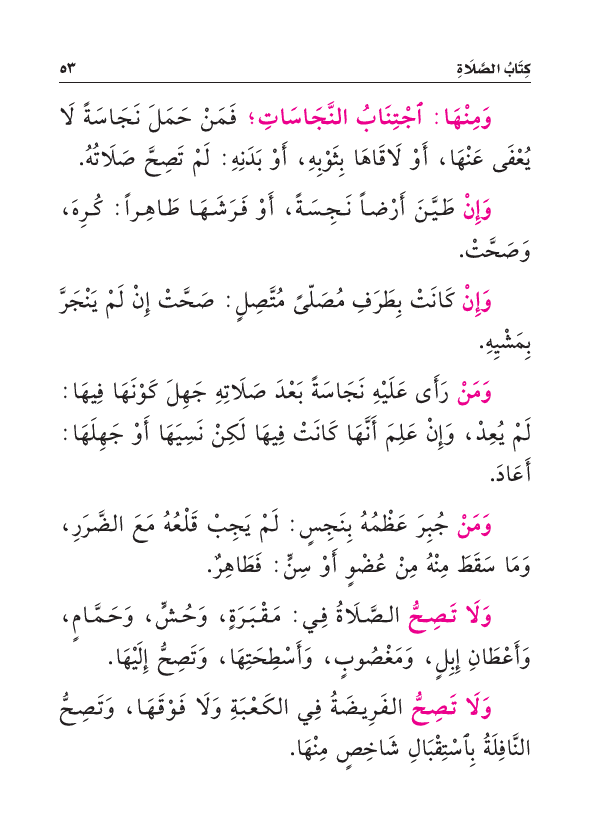 كِتَابُ الصَّلَاةِ ٥٣
وَمِنْهَا: ٱجْتِنَابُ النَّجَاسَاتِ؛ فَمَنْ حَمَلَ نَجَاسَةً لَا
يُعْفَى عَنْهَا، أَوْ لَاقَاهَا بِثَوْبِهِ، أَوْ بَدَنِهِ: لَمْ تَصِحَّ صَلَاتُهُ.
وَإِنْ طَيَّنَ أَرْضاً نَجِسَةً، أَوْ فَرَشَهَا طَاهِراً: كُرِهَ،
وَصَحَّتْ.
وَإِنْ كَانَتْ بِطَرَفِ مُصَلّىً مُتَّصِلٍ: صَحَّتْ إِنْ لَمْ يَنْجَرَّ
بِمَشْيِهِ.
وَمَنْ رَأَى عَلَيْهِ نَجَاسَةً بَعْدَ صَلَاتِهِ جَهِلَ كَوْنَهَا فِيهَا:
لَمْ يُعِدْ، وَإِنْ عَلِمَ أَنَّهَا كَانَتْ فِيهَا لَكِنْ نَسِيَهَا أَوْ جَهِلَهَا:
أَعَادَ.
وَمَنْ جُبِرَ عَظْمُهُ بِنَجِسٍ: لَمْ يَجِبْ قَلْعُهُ مَعَ الضَّرَرِ،
وَمَا سَقَطَ مِنْهُ مِنْ عُضْوٍ أَوْ سِنٍّ: فَطَاهِرٌ.
وَلَا تَصِحُّ الصَّلَاةُ فِي: مَقْبَرَةٍ، وَحُشٍّ، وَحَمَّامٍ،
وَأَعْطَانِ إِبِلٍ، وَمَغْصُوبٍ، وَأَسْطِحَتِهَا، وَتَصِحُّ إِلَيْهَا.
وَلَا تَصِحُّ الفَرِيضَةُ فِي الكَعْبَةِ وَلَا فَوْقَهَا، وَتَصِحُّ
النَّافِلَةُ بِٱسْتِقْبَالِ شَاخِصٍ مِنْهَا.